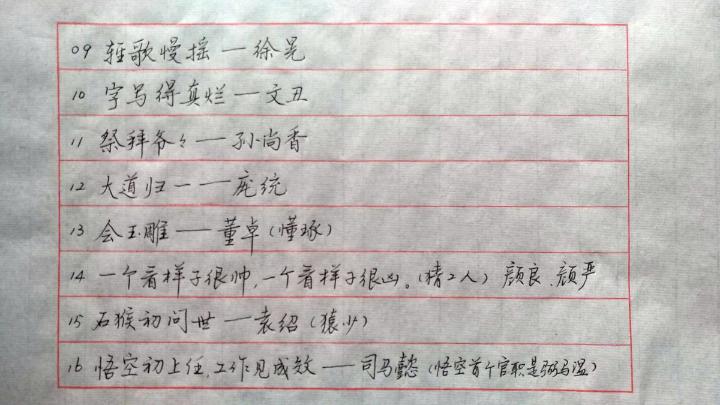 09 轻歌慢摇——徐晃
10 字写得真烂——文丑
11 祭拜爷々——孙尚香
12 大道归一——庞统
13 会玉雕——董卓(懂琢)
14 一个看样子很帅,一个看样子很凶。(猜2人) 颜良、颜严
15 石猴初问世——袁绍(猿少)
16 悟空初上任,工作见成效——司马懿(悟空首个官职是弼马温)